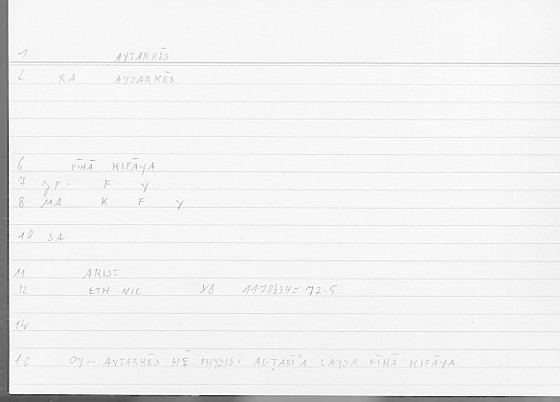 1 AYTARKĒS
2 RA AYTARKĒS
6 FĪHĀ KIFĀYA
7 F Y
8 MA K F Y
10 SA
11 ARIST
12 ETH NIC XB 1178b34 = 72.5
14
16 OY… AYTARKĒS HĒ PHYSIS: AL-ṬABĪʿA LAYSA FĪHĀ KIFĀYA